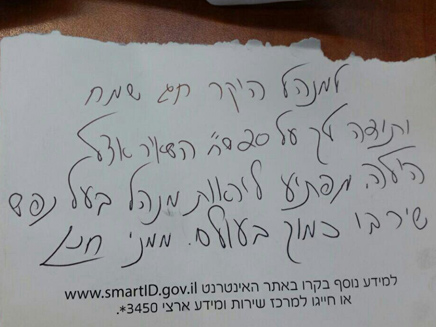 למנהל היקר חג שמח
ותודה לך על
הילה. מפתיע לראות מנהל בעל נפש
שירבו כמוך בעולם. ממני חנן
למידע נוסף בקרו באתר האינטרנט www.smartID.gov.il
או חייגו למרכז שירות ומידע ארצי 3450*.